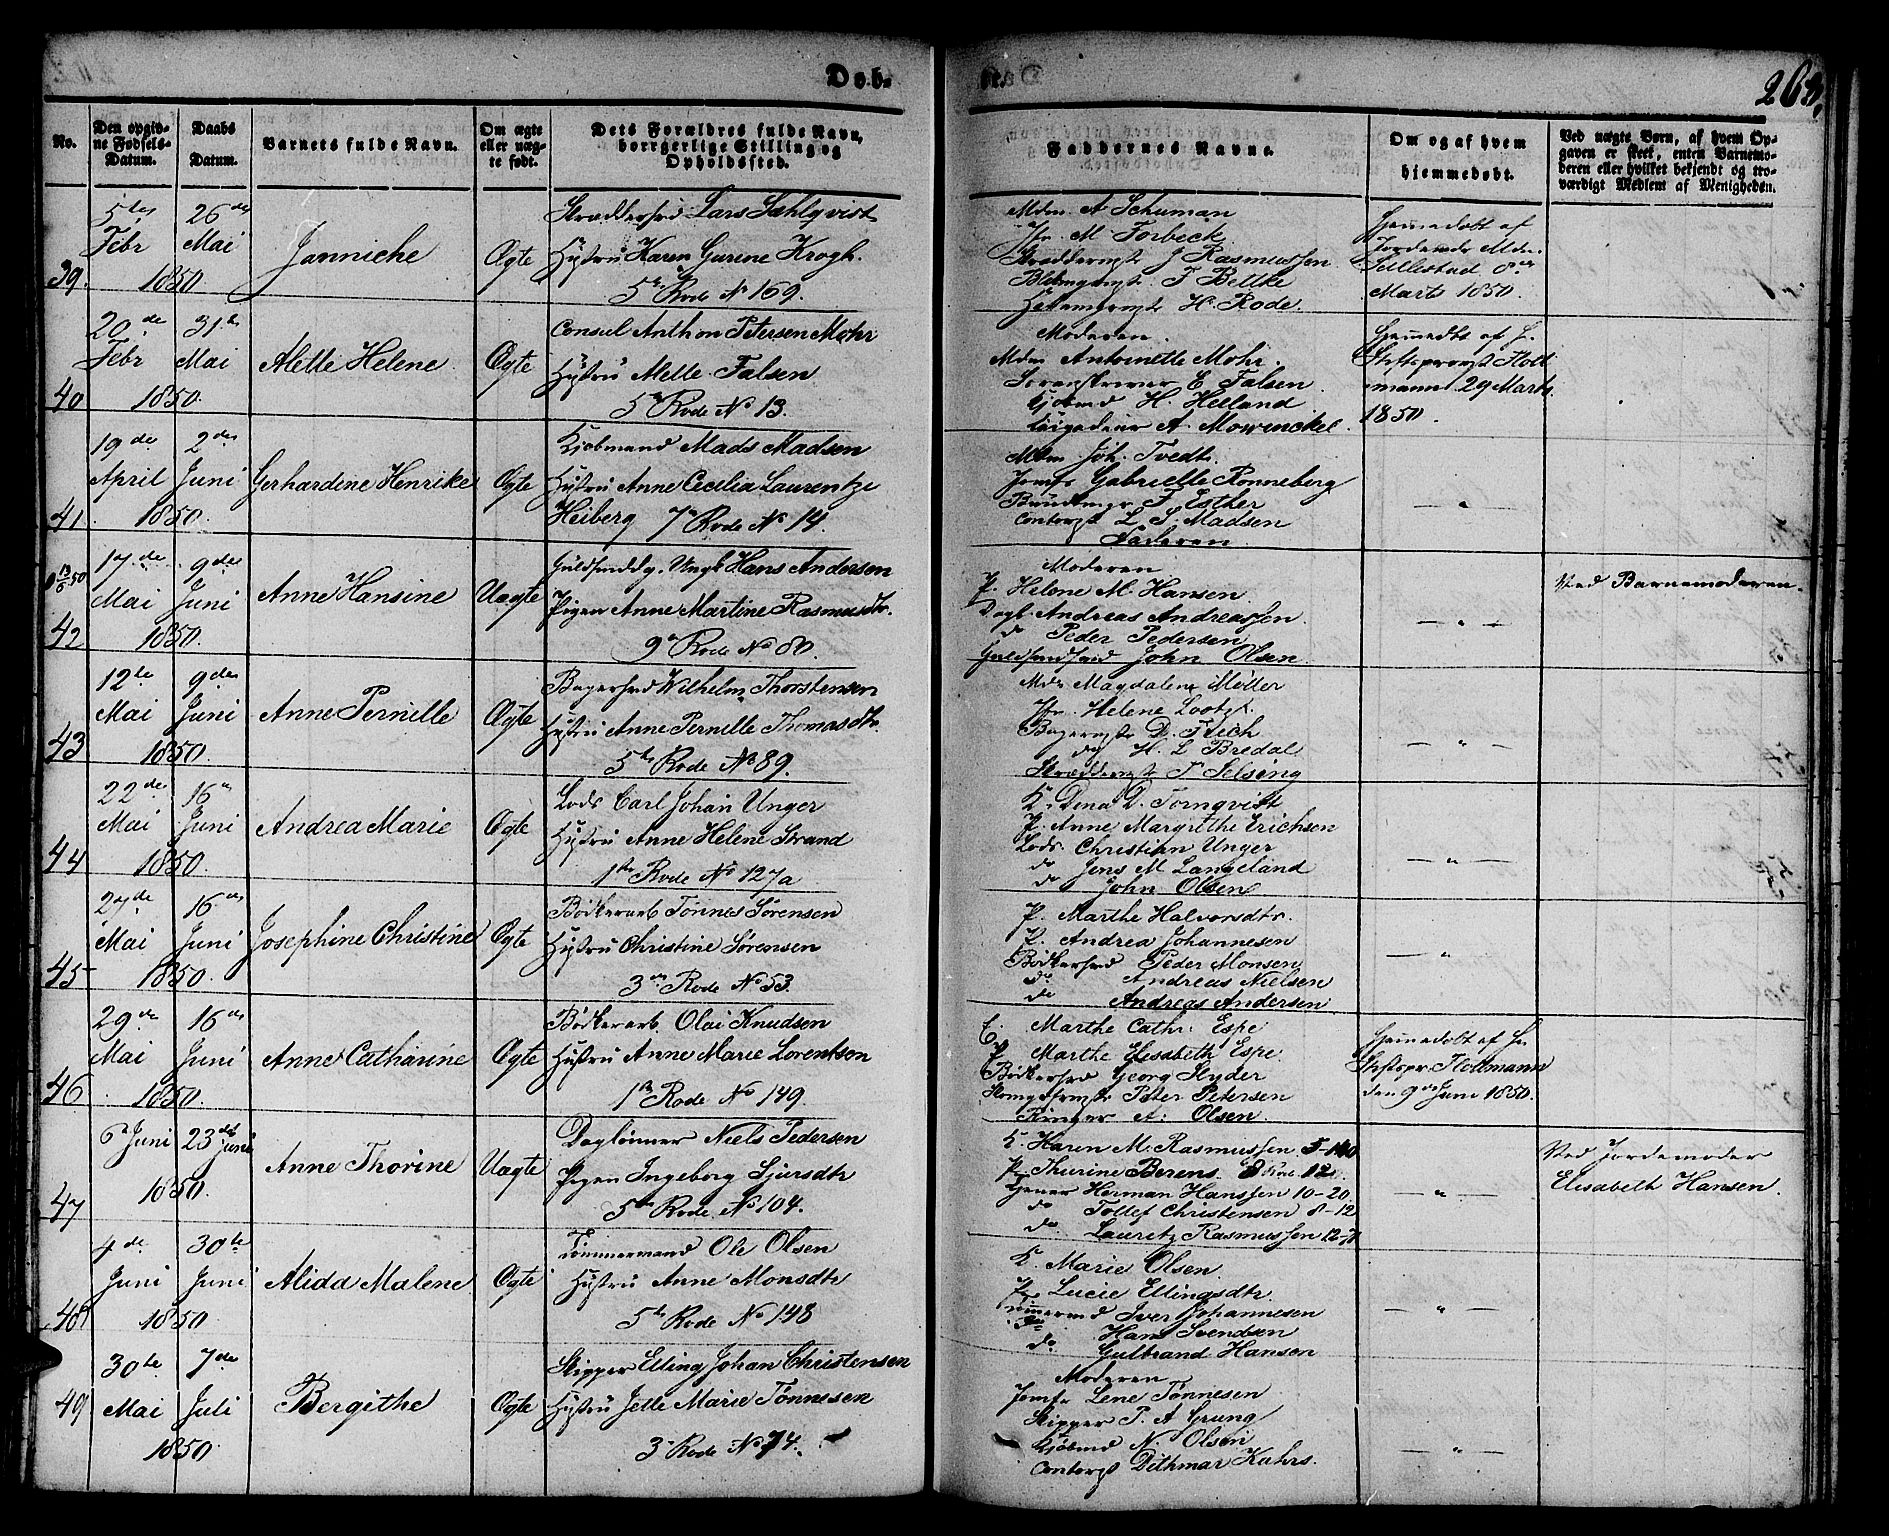 Døb-
263.
No.
Den opgiv-
ne Fødsels-
Datum.
Daabs
Datum.
Barnets fulde Navn.
Om ægte
eller uæg-
te født.
Dets Forældres fulde Navn,
borgerlige Stilling og
Opholdssted.
Faddernes Navne.
Om og af hvem
hjemmedøbt.
Ved uægte Børn, af hvem Op-
gaven er skeet, enten Barnemo-
deren eller hvilket bekjendt og tro-
værdigt Medlem af Menigheden.
39.
5te Febr
26de Mai
1850
Janniche
Ægte
Lars Sahlqvist
Hustru Karen Gurine Krogh.
5te Rode No 169.
Mdm. A Schuman
Jfr M Torbeck
J Rasmussen
F Bettke
H. Rode.
Hjemedøbt af
Jordemdr Mdm.
Sellestad 8de
Marts 1850.
40
20de Febr
31te Mai
1850.
Alette Helene
Ægte
Consul Anthon Petersen Mohr
Hustru Mette Falsen
5te Rode No 13.
Moderen.
Mdm Antoinette Mohr.
Sorenskriver E Falsen.
Kjøbmd H Heiland
A. Mowinckel.
Hjemedøbt af H.
Stiftsprovst Holt
mann 29 Marts
1850.
41
19de April
2den Juni
1850.
Gerhardine Henrike
Ægte
Kjøbmand Mads Madsen
Hustru Anne Cecilia Laurentze
Heiberg 7de Rode No 14.
Mdm Joh. Tvedt.
Jomfr Gabrielle Rønneberg
F Esther
Contorist L S. Madsen
Faderen
— " —
42
17de Mai
9de Juni
1850.
Anne Hansine
Uægte
Ungk Hans Andersen
Pigen Anne Martine Rasmusdtr.
9de Rode No 80.
Moderen
P. Helene M. Hansen.
Dagl. Andreas Andreassen.
do Peder Pedersen
John Olsen
— " —
Ved Barnemoderen.
43
12te Mai
9de Juni
1850.
Anne Pernille
Ægte
Bagersvd Wilhelm Thorstensen
Hustru Anne Pernille Thomasdtr.
5te Rode No 89.
Mdm Magdalene Møller
Jfr. Helene Lootz.
D. Fich
do H. L Bredal
T Selsing
— " —
44
22de Mai
16de Juni
1850.
Andrea Marie
Ægte
Lods Carl Johan Unger
Hustru Anne Helene Strand
1ste Rode No 127a
K. Dina D. Tornqvist
P. Anne Margrethe Erichsen
Lods Christian Unger
do Jens M Langeland
do John Olsen
— " —
45
27de Mai
16de Juni
1850.
Josephine Christine
Ægte
Bødkerarb Tønnes Sørensen
Hustru Christine Sørensen
3die Rode No 53.
P. Marthe Halvorsdtr.
P. Andrea Johannesen
Bødkersvd Peder Monsen
do Andreas Nielsen
do Andreas Andersen
— " —
46
29de Mai
16de Juni
1850.
Anne Catharine
Ægte
Bødkerarb. Olai Knudsen
Hustru Anne Marie Lorentson
1ste Rode No 149.
Marthe Cathr: Espe
P Marthe Elisabeth Espe
Bødkersvd Georg Slyder
Peter Petersen
Ringer A: Olsen
Hjemedøbt af Hr
Stiftspr. Holtmann
den 9de Juni 1850.
47
6 Juni
23de Juni
1850.
Anne Thorine
Uægte
Daglønner Niels Pedersen
Pigen Ingeborg Sjursdtr
5te Rode No 104.
K. Karen M. Rasmussen 5-140
P. Thurine Berens 8 Rode 12
Herman Hanssen 10-20.
do Tollef Christensen 8-12
do Lauritz Rasmussen
— " —
Ved Jordemoder
Elisabeth Hansen.
48
4de Juni
30te Juni
1850
Alida Malene
Ægte
Tømmermand Ole Olsen
Hustru Anne Monsdtr
5te Rode No 148
K. Marie Olsen
P. Lucie Ellingsdtr.
Tømmermd Iver Johannesen
do Hans Svendsen
do Gulbrand Hansen
— " —
49
30te Mai
7de Juli
1850
Bergithe
Ægte
Skipper Elling Johan Christensen
Hustru Jette Marie Tønnesen
3 Rode No 74.
Moderen
Jomfr Lene Tønnesen
Skipper P. A Grung
Kjøbmd N. Olsen
Contorist Dithmar Kahrs.
— " —